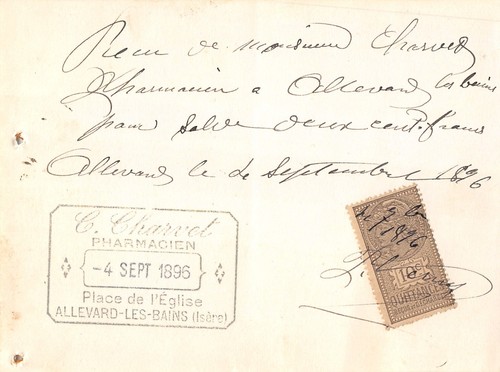 Recu de monsieur Charvet
Pharmacien a Allevard les bains
pour solde deux cent francs
Allevard le 4 Septembre 1896
C. Charvet
PHARMACIEN
-4 SEPT 1896
Place de l'Église
ALLEVARD-LES-BAINS (Isère)
1896
10
QUITTANCES